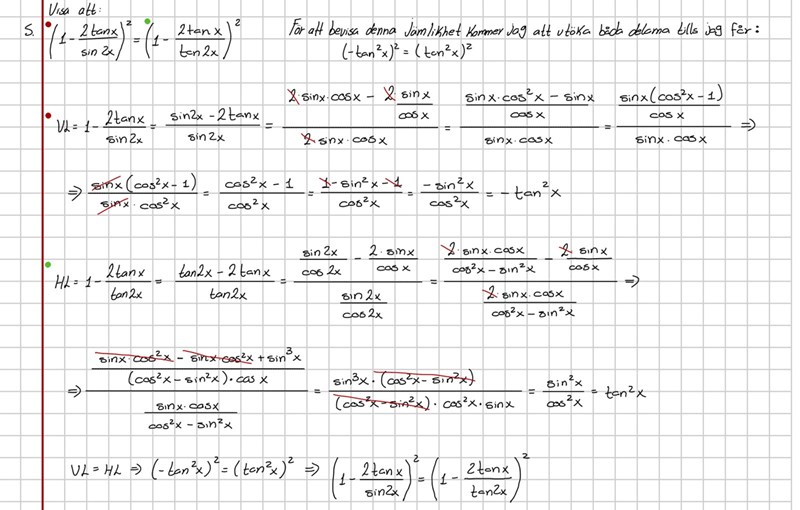 Visa att:
5. (1 - 2tanx/sin2x)² = (1 - 2tanx/tan2x)²
För att bevisa denna jämlikhet kommer jag att utöka båda delarna tills jag får:
(-tan²x)² = (tan²x)²
VL = 1 - 2tanx/sin2x = (sin2x - 2tanx)/sin2x = (2 sinx · cosx - 2 sinx/cosx)/(2 sinx · cosx) = ((sinx · cos²x - sinx)/cosx)/(sinx · cosx) = (sinx(cos²x - 1)/cosx)/(sinx · cosx) ⇒
⇒ sinx(cos²x - 1)/(sinx · cos²x) = (cos²x - 1)/cos²x = (1 - sin²x - 1)/cos²x = -sin²x/cos²x = -tan²x
HL = 1 - 2tanx/tan2x = (tan2x - 2tanx)/tan2x = (sin2x/cos2x - 2·sinx/cosx)/(sin2x/cos2x) = (2·sinx·cosx/(cos²x - sin²x) - 2 sinx/cosx)/(2·sinx·cosx/(cos²x - sin²x)) ⇒
⇒ ((sinx·cos²x - sinx·cos²x + sin³x)/((cos²x - sin²x)·cosx))/(sinx·cosx/(cos²x - sin²x)) = sin³x·(cos²x - sin²x)/((cos²x - sin²x)·cos²x·sinx) = sin²x/cos²x = tan²x
VL = HL ⇒ (-tan²x)² = (tan²x)² ⇒ (1 - 2tanx/sin2x)² = (1 - 2tanx/tan2x)²